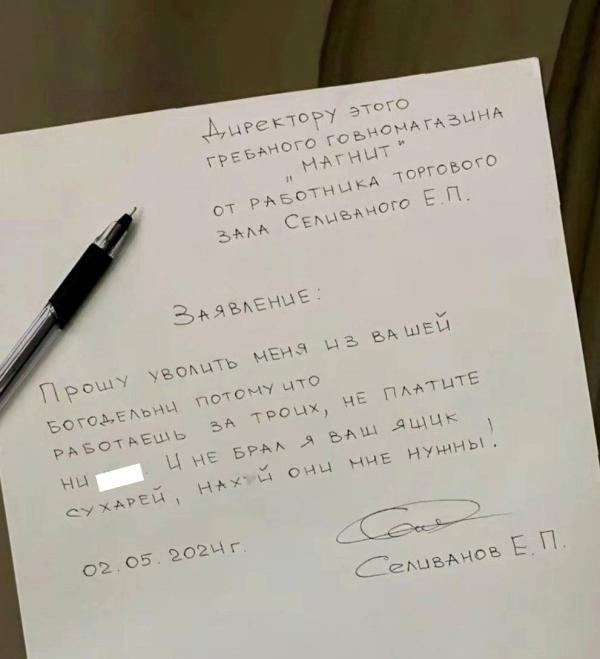 Директору этого
гребаного говномагазина
„Магнит"
от работника торгового
зала Селиваного Е.П.
Заявление:
Прошу уволить меня из вашей
богодельни потому что
работаешь за троих, не платите
ни . И не брал я ваш ящик
сухарей, нахуй они мне нужны!
02.05.2024г.
Селиванов Е.П.